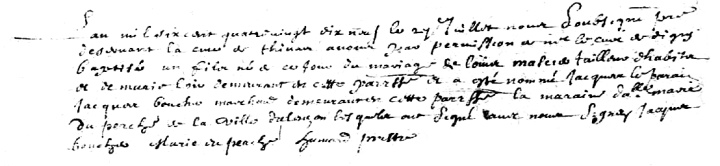 L'an mil six cent quatre vingt dix neuf le 27 Juillet nous soubsigné pre
desservant la cure de avons par permission de mr le curé de
baptisé un fils né de ce jour du mariage de tailleur d'habits
et de marie demeurant en cette parrsse et a esté nommé Jacques le parain
Jacques bouche marchand demeurant en cette parrsse la maraine dalle marie
du perche de la ville dalençon lesquels ont signé avec nous signes Jacques
bouche Marie du perche prestre